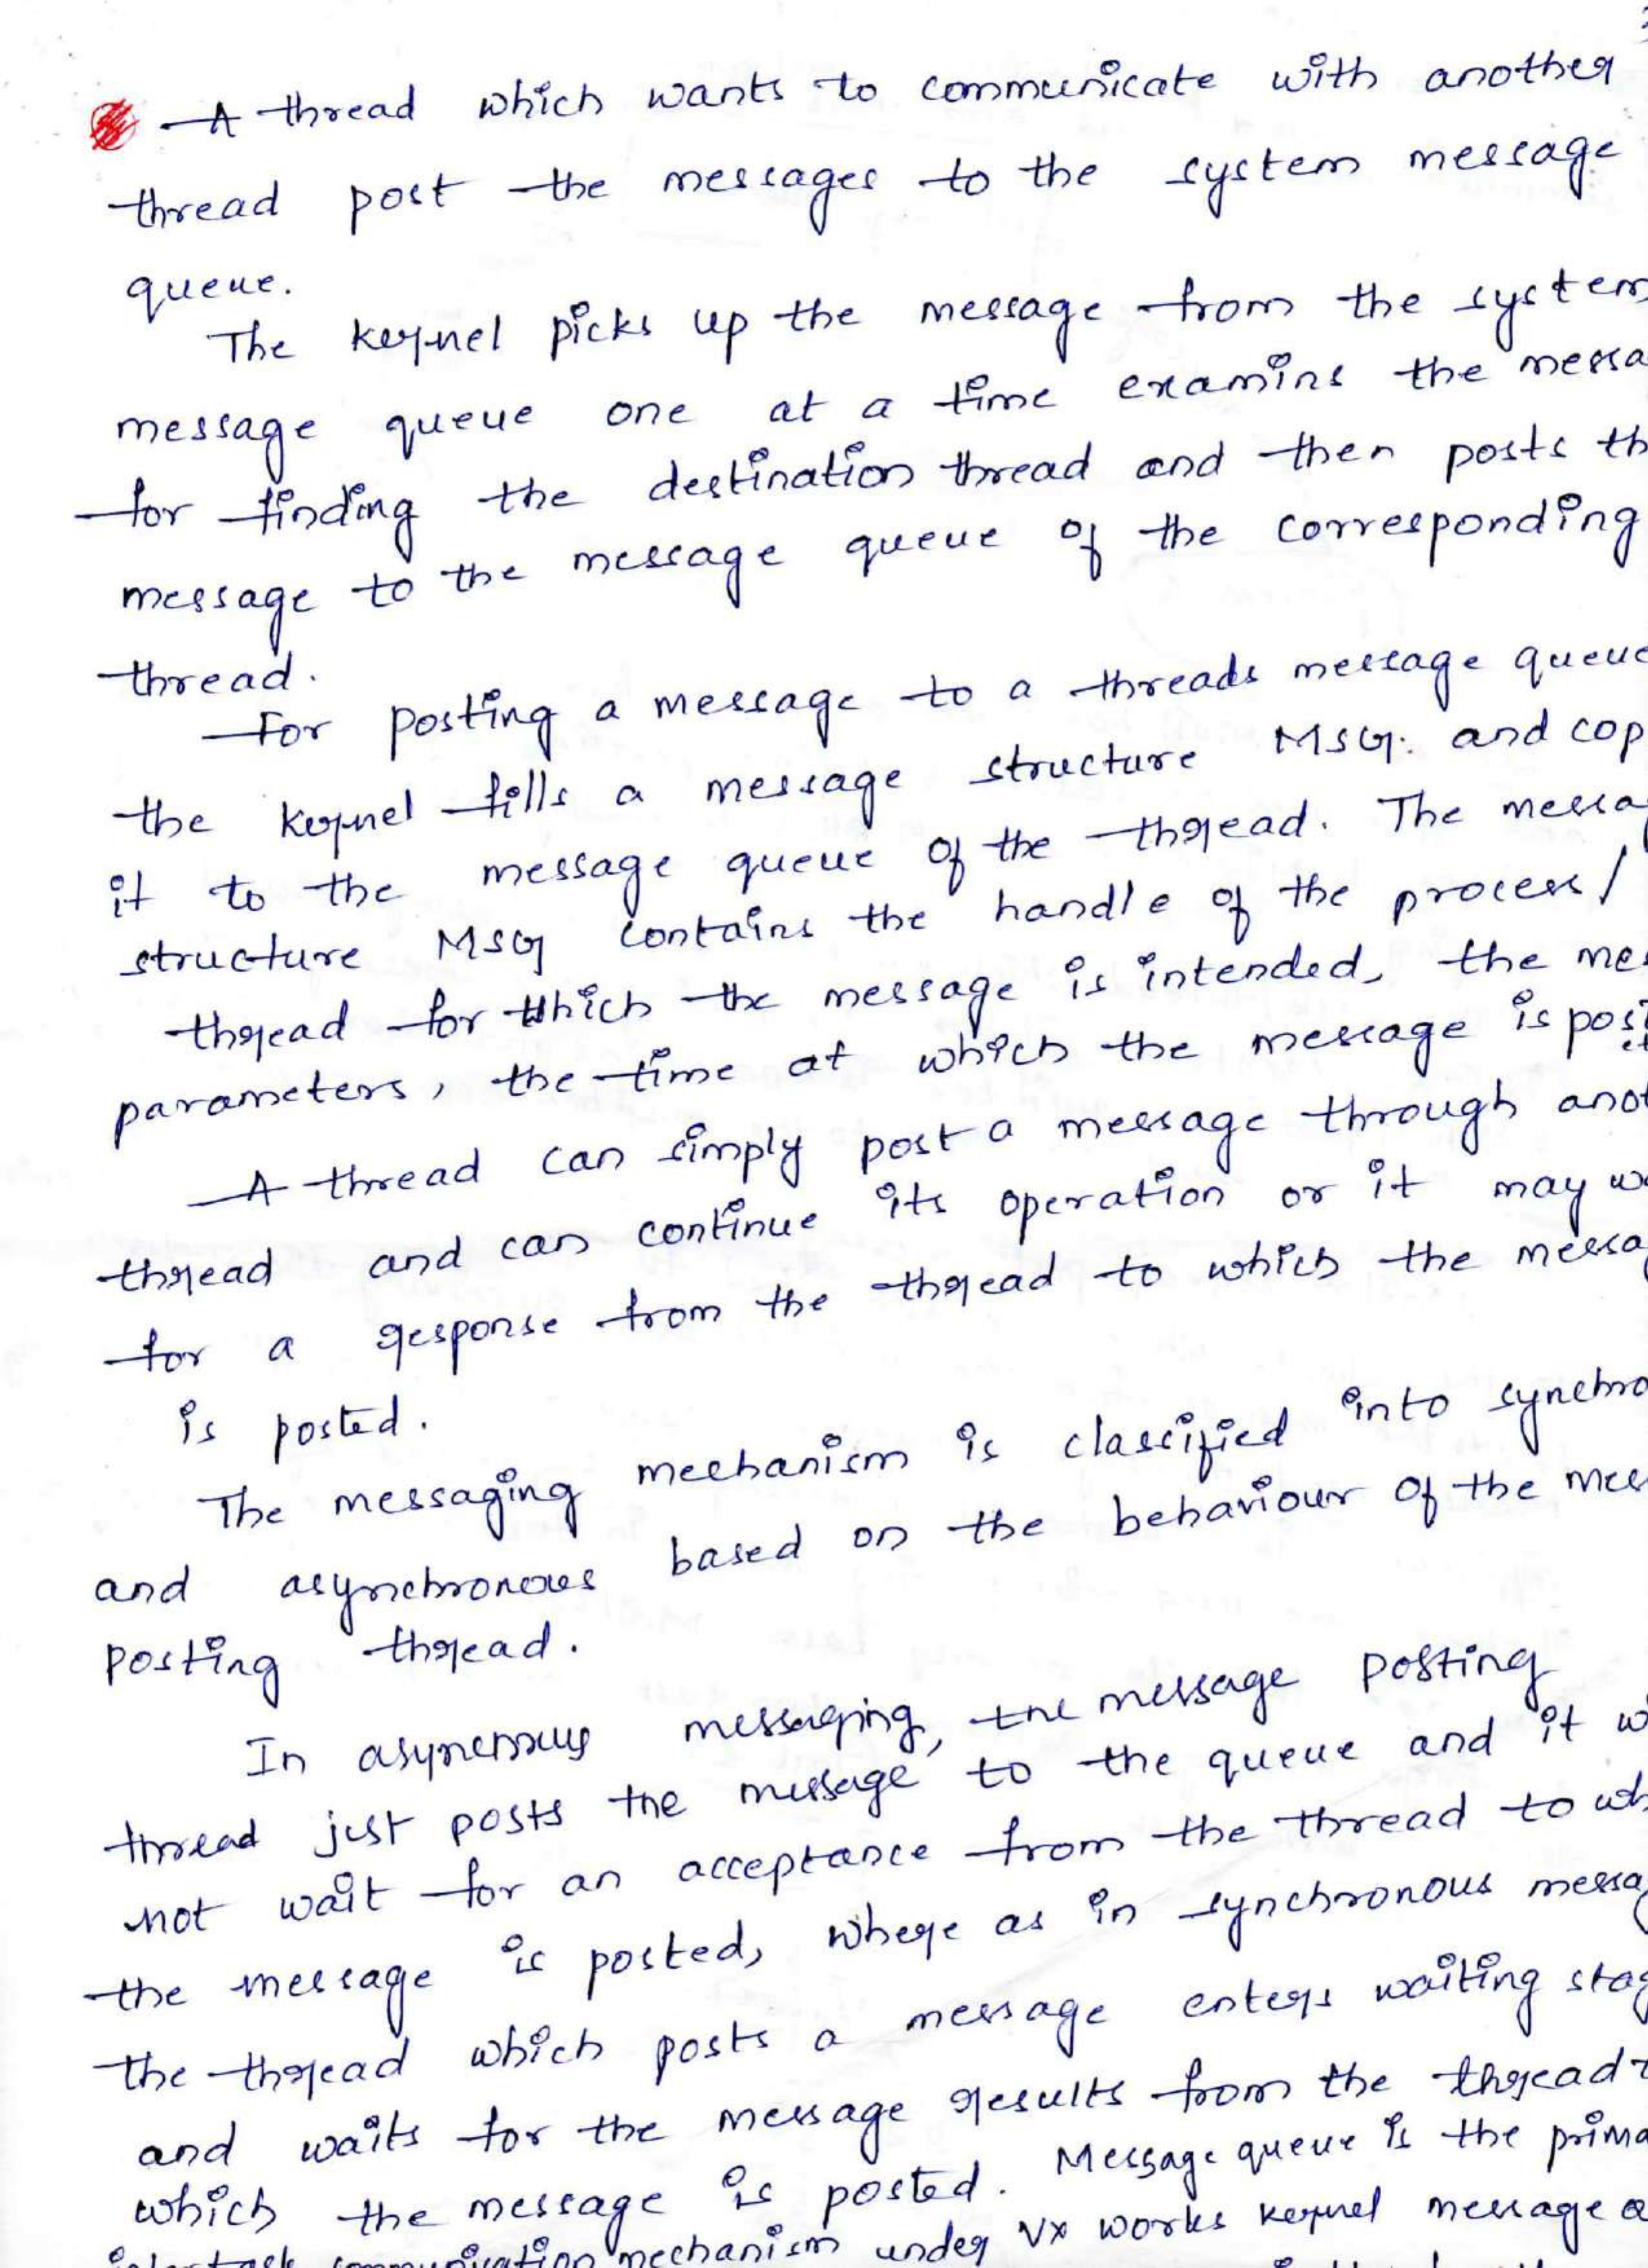 A thread which wants to communicate with another
thread post the messages to the system message
queue.
The kernel picks up the message from the system
message queue one at a time examins the messa
for finding the destination thread and then posts th
message to the message queue of the corresponding
thread.
For posting a message to a threads message queue
the kernel fills a message structure MSG. and cop
it to the message queue of the thread. The messag
structure MSG contains the handle of the process/
thread for which the message is intended, the mes
parameters, the time at which the message is post
A thread can simply post a message through anot
thread and can continue its operation or it may wa
for a response from the thread to which the messag
is posted.
The messaging mechanism is classified into synchro
and asynchronous based on the behaviour of the mes
posting thread.
In messaging, the message posting
thread just posts the message to the queue and it w
not wait for an acceptance from the thread to wh
the message is posted, where as in synchronous messag
the thread which posts a message enters waiting stag
and waits for the message results from the thread t
which the message is posted. Message queue is the prima
communication mechanism under Vx works kernel message